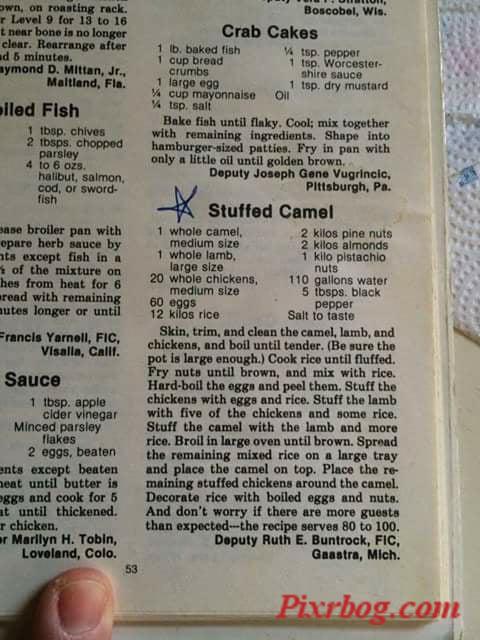 own, on roasting rack.
r Level 9 for 13 to 16
t near bone is no longer
clear. Rearrange after
d 5 minutes.
aymond D. Mittan, Jr.,
Maitland, Fla.
oiled Fish
1 tbsp. chives
2 tbsps. chopped
parsley
4 to 6 ozs.
halibut, salmon,
cod, or sword-
fish
ease broiler pan with
repare herb sauce by
nts except fish in a
of the mixture on
hes from heat for 6
pread with remaining
nutes longer or until
Francis Yarnell, FIC,
Visalia, Calif.
Sauce
1 tbsp. apple
cider vinegar
Minced parsley
flakes
2 eggs, beaten
ents except beaten
heat until butter is
eggs and cook for 5
at until thickened.
r chicken.
or Marilyn H. Tobin,
Loveland, Colo.
Boscobel, Wis.
Crab Cakes
1 lb. baked fish
1 cup bread
crumbs
1 large egg
¼ cup mayonnaise
¼ tsp. salt
¼ tsp. pepper
1 tsp. Worcester-
shire sauce
1 tsp. dry mustard
Oil
Bake fish until flaky. Cool; mix together
with remaining ingredients. Shape into
hamburger-sized patties. Fry in pan with
only a little oil until golden brown.
Deputy Joseph Gene Vugrincic,
Pittsburgh, Pa.
Stuffed Camel
1 whole camel,
medium size
1 whole lamb,
large size
20 whole chickens,
medium size
60 eggs
12 kilos rice
2 kilos pine nuts
2 kilos almonds
1 kilo pistachio
nuts
110 gallons water
5 tbsps. black
pepper
Salt to taste
Skin, trim, and clean the camel, lamb, and
chickens, and boil until tender. (Be sure the
pot is large enough.) Cook rice until fluffed.
Fry nuts until brown, and mix with rice.
Hard-boil the eggs and peel them. Stuff the
chickens with eggs and rice. Stuff the lamb
with five of the chickens and some rice.
Stuff the camel with the lamb and more
rice. Broil in large oven until brown. Spread
the remaining mixed rice on a large tray
and place the camel on top. Place the re-
maining stuffed chickens around the camel.
Decorate rice with boiled eggs and nuts.
And don't worry if there are more guests
than expected—the recipe serves 80 to 100.
Deputy Ruth E. Buntrock, FIC,
Gaastra, Mich.
53
Pixrbog.com